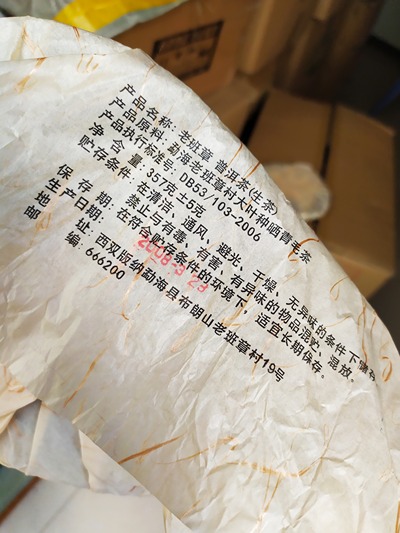 产品名称: 老班章 普洱茶(生茶)
产品原料: 勐海老班章村大叶种晒青毛茶
产品执行标准号: DB53/103-2006
净 含 量: 357克±5克
贮存条件: 在清洁、通风、避光、干燥、无异味的条件下
禁止与有毒、有害、有异味的物品混贮、混放。
保 存 期: 在符合贮存条件的环境下,适宜长期保存。
生产日期: 2008-3-23
地 址: 西双版纳勐海县布朗山老班章村19号
邮 编: 666200